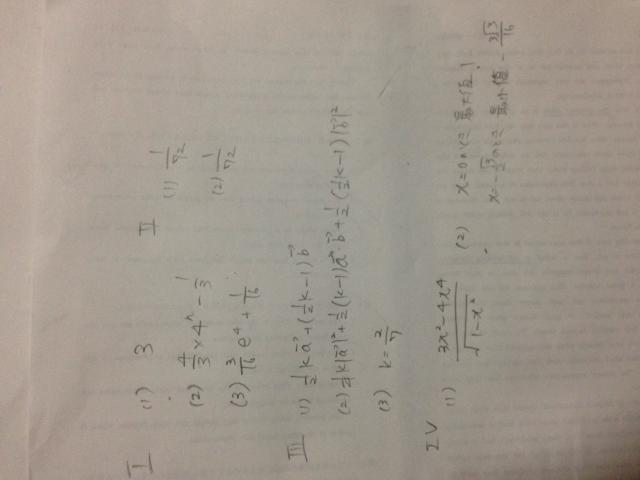 I (1) 3
(2) 4/3 × 4ⁿ - 1/3
(3) 3/16 e⁴ + 1/16
II (1) 1/72
(2) 1/72
III (1) 1/2 k a⃗ + (1/2 k - 1) b⃗
(2) 1/2 k|a⃗|² + 1/2 (k-1) a⃗・b⃗ + 1/2 (1/2 k - 1) |b⃗|²
(3) k = 2/7
IV (1) 3x² - 4x⁴ / √1-x²
(2) x = 0 のとき 最大値 1
x = -√3/2 のとき 最小値 - 3√3/16